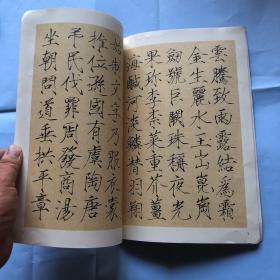 雲騰致雨露結為霜
金生麗水玉出崑崗
劍號巨闕珠稱夜光
果珍李柰菜重芥薑
海鹹河淡鱗潛羽翔
始制文字乃服衣裳
推位遜國有虞陶唐
弔民伐罪周發商湯
坐朝問道垂拱平章